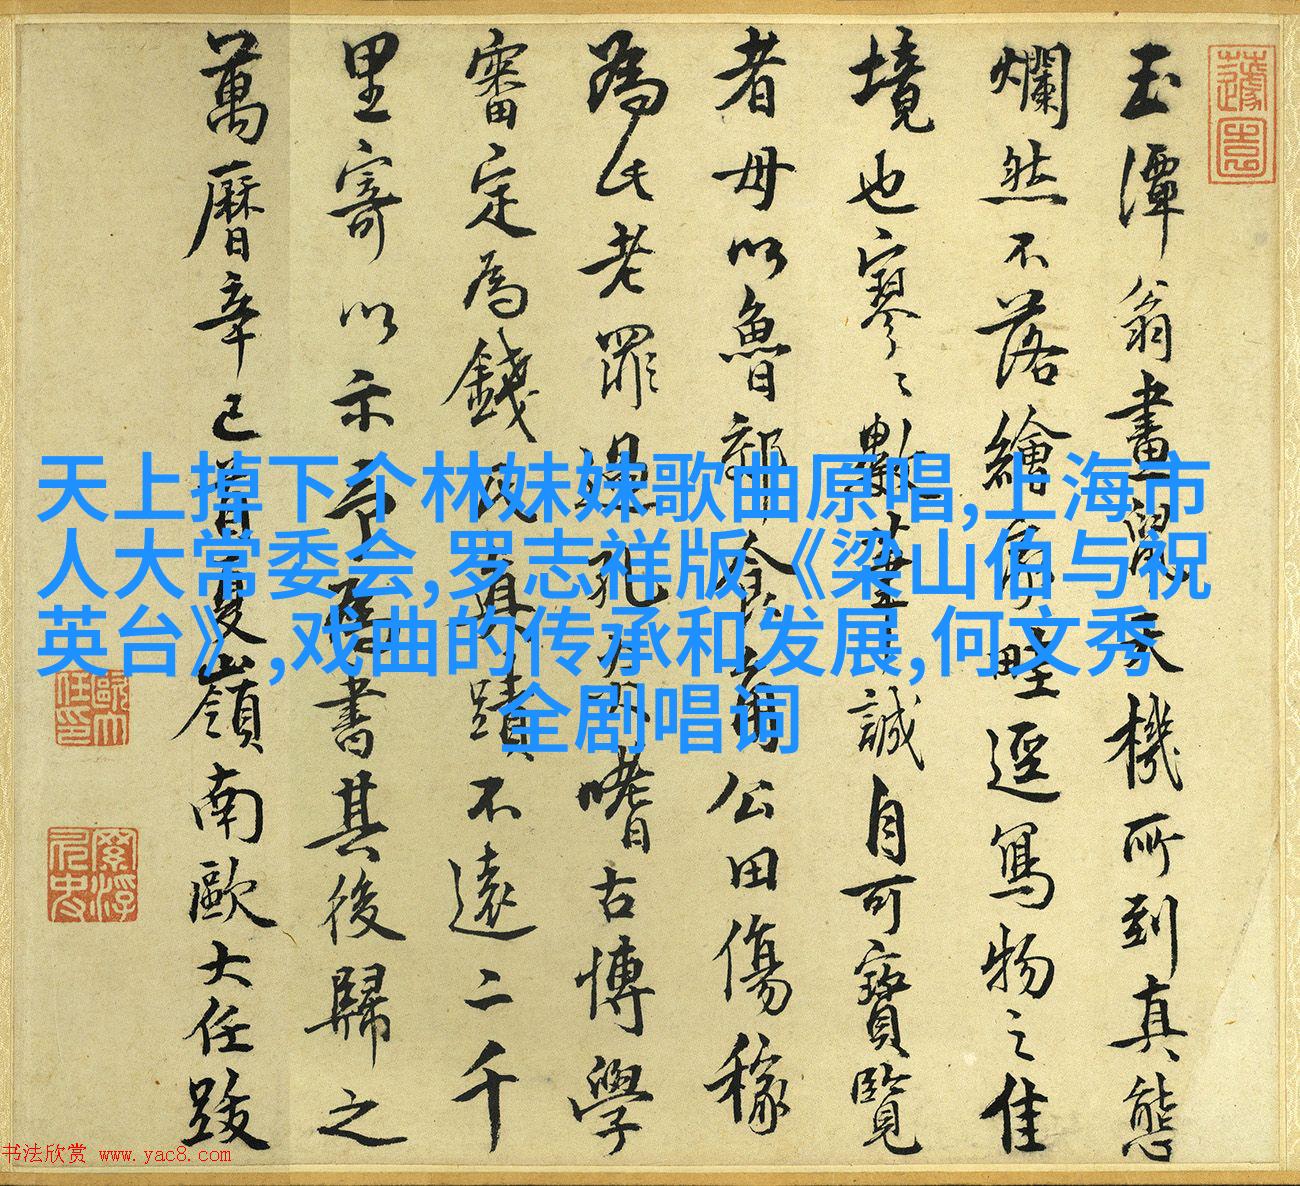 玉潭翁畫鼠天機所到真態
爛然不落繪家畦逕寫物之佳
境也寥寥數筆誠自可寶覽
者毋以魯郊食角公田傷稼
為此老罪過孔嗜古博學
審定為錢氏真蹟不遠二千
里寄以示予為書其後歸之
萬曆辛巳首夏嶺南歐大任跋
天上掉下个林妹妹歌曲原唱,上海市
人大常委会,罗志祥版《梁山伯与祝
英台》,戏曲的传承和发展,何文秀
全剧唱词
歐大任印
书法欣赏 www.yac8.com